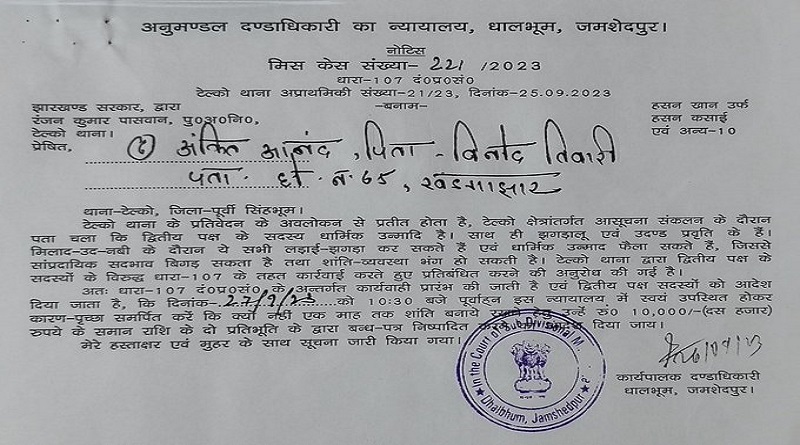 अनुमण्डल दण्डाधिकारी का न्यायालय, धालभूम, जमशेदपुर।
नोटिस
मिस केस संख्या- 221 /2023
धारा-107 दं०प्र०सं०
टेल्को थाना अप्राथमिकी संख्या-21/23, दिनांक-25.09.2023
झारखण्ड सरकार, द्वारा -बनाम- हसन खान उर्फ
रंजन कुमार पासवान, पु०अ०नि०, हसन कसाई
टेल्को थाना। एवं अन्य-10
प्रेषित, अंकित आनंद, पिता - विनोद तिवारी
पता- हो. न. 65, खडंगाझार
थाना-टेल्को, जिला-पूर्वी सिंहभूम।
टेल्को थाना के प्रतिवेदन के अवलोकन से प्रतीत होता है, टेल्को क्षेत्रांतर्गत आसूचना संकलन के दौरान
पता चला कि द्वितीय पक्ष के सदस्य धार्मिक उन्मादि है। साथ ही झगड़ालू एवं उदण्ड प्रवृति के हैं।
मिलाद-उद-नबी के दौरान ये सभी लड़ाई-झगड़ा कर सकते हैं एवं धार्मिक उन्माद फैला सकते हैं, जिससे
सांप्रदायिक सदभाव बिगड़ सकता है तथा शांति-व्यवस्था भंग हो सकती है। टेल्को थाना द्वारा द्वितीय पक्ष के
सदस्यों के विरुद्ध धारा-107 के तहत कार्रवाई करते हुए प्रतिबंधित करने की अनुरोध की गई है।
अतः धारा-107 दं०प्र०सं० के अन्तर्गत कार्यवाही प्रारंभ की जाती है एवं द्वितीय पक्ष सदस्यों को आदेश
दिया जाता है, कि दिनांक- 27/9/23 को 10:30 बजे पूर्वाहन इस न्यायालय में स्वयं उपस्थित होकर
कारण-पृच्छा समर्पित करें कि क्यों नहीं एक माह तक शांति बनाये रखने हेतु उन्हें रु० 10,000/-(दस हजार)
रुपये के समान राशि के दो प्रतिभूति के द्वारा बन्ध-पत्र निष्पादित दिया जाय।
मेरे हस्ताक्षर एवं मुहर के साथ सूचना जारी किया गया।
In the Court of Sub Divisional M.
Dhalbhum, Jamshedpur
कार्यपालक दण्डाधिकारी
धालभूम, जमशेदपुर।